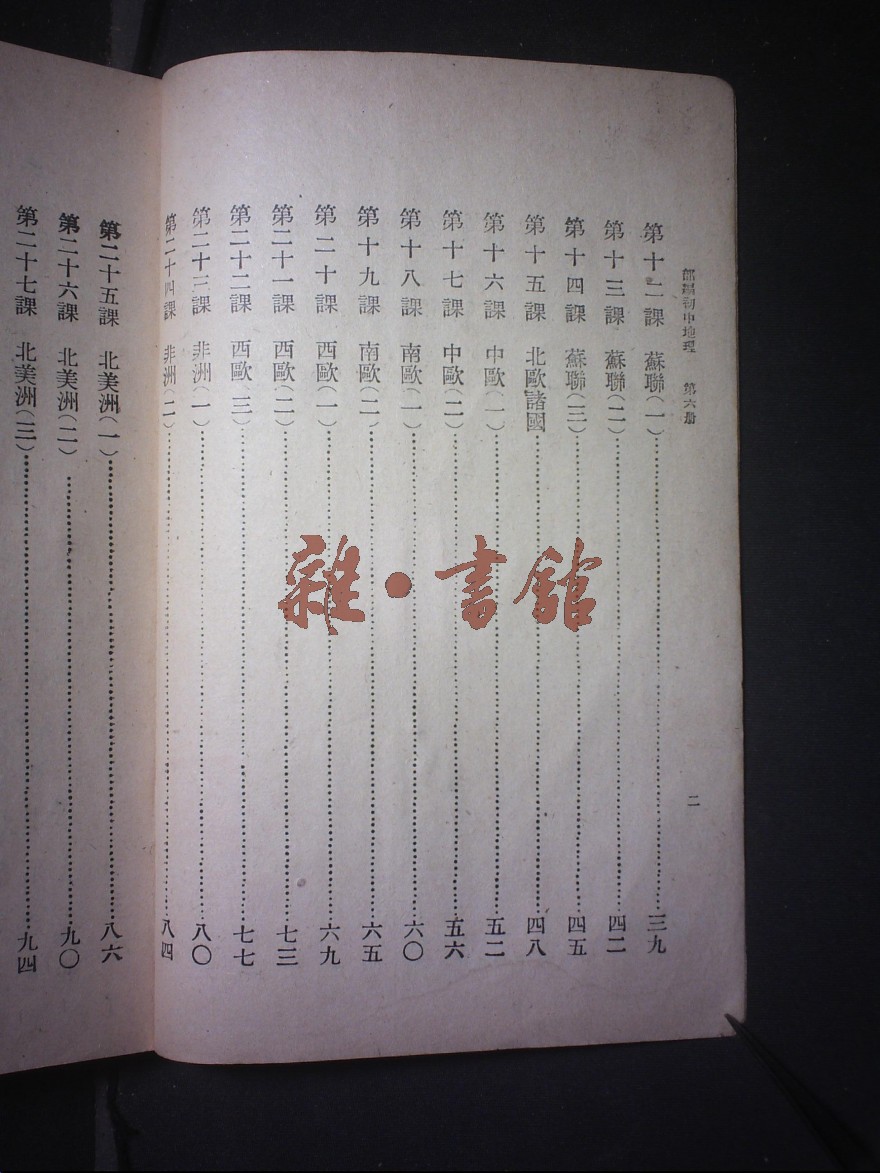 部編初中地理 第六册
二
第十二課 蘇聯(一)………三九
第十三課 蘇聯(二)………四二
第十四課 蘇聯(三)………四五
第十五課 北歐諸國………四八
第十六課 中歐(一)………五二
第十七課 中歐(二)………五六
第十八課 南歐(一)………六〇
第十九課 南歐(二)………六五
第二十課 西歐(一)………六九
第二十一課 西歐(二)………七三
第二十二課 西歐(三)………七七
第二十三課 非洲(一)………八〇
第二十四課 非洲(二)………八四
第二十五課 北美洲(一)………八六
第二十六課 北美洲(二)………九〇
第二十七課 北美洲(三)………九四
雜·書館